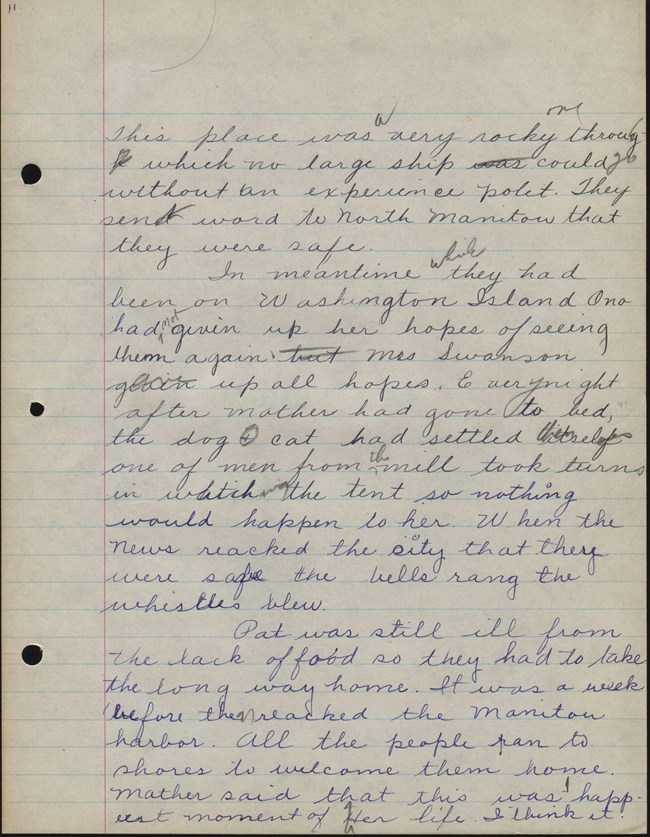 11
This place was a very rocky one through
which no large ship was could go
without an experience polet. They
send word to North Manitou that
they were safe.
In meantime while they had
been on Washington Island Ono
had not givin up her hopes of seeing
them again, but Mrs Swanson
givin up all hopes. Every night
after mother had gone to bed,
the dog & cat had settled
one of men from the mill took turns
in watching the tent so nothing
would happen to her. When the
news reached the city that they
were safe the bells rang the
whistles blew.
Pat was still ill from
the lack of food so they had to take
the long way home. It was a week
before they reached the Manitou
harbor. All the people ran to
shores to welcome them home.
Mother said that this was happ-
iest moment of her life. I think it!